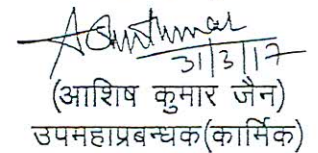 31/3/17
(आशिष कुमार जैन)
उपमहाप्रबन्धक(कार्मिक)